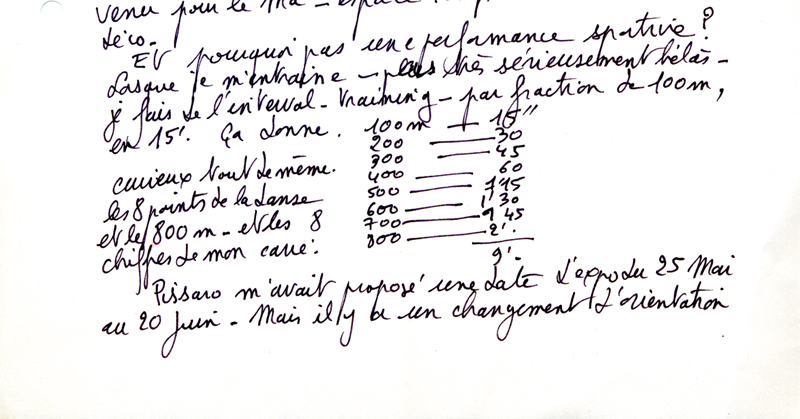 venu pour le Ma - espace
déco.
Et pourquoi pas une performance sportive?
Lorsque je m'entraine - plus très sérieusement hélas -
je fais de l'interval - training - par fraction de 100m,
en 15'. Ça donne.
100m — 15"
200 — 30
300 — 45
400 — 60
500 — 1'15
600 — 1'30
700 — 1 45
800 — 2'.
9'.
curieux tout de même.
les 8 points de la danse
et le 800 m - et les 8
chiffres de mon carré.
Pissaro m'avait proposé une date d'expo du 25 Mai
au 20 Juin - Mais il y a un changement d'orientation